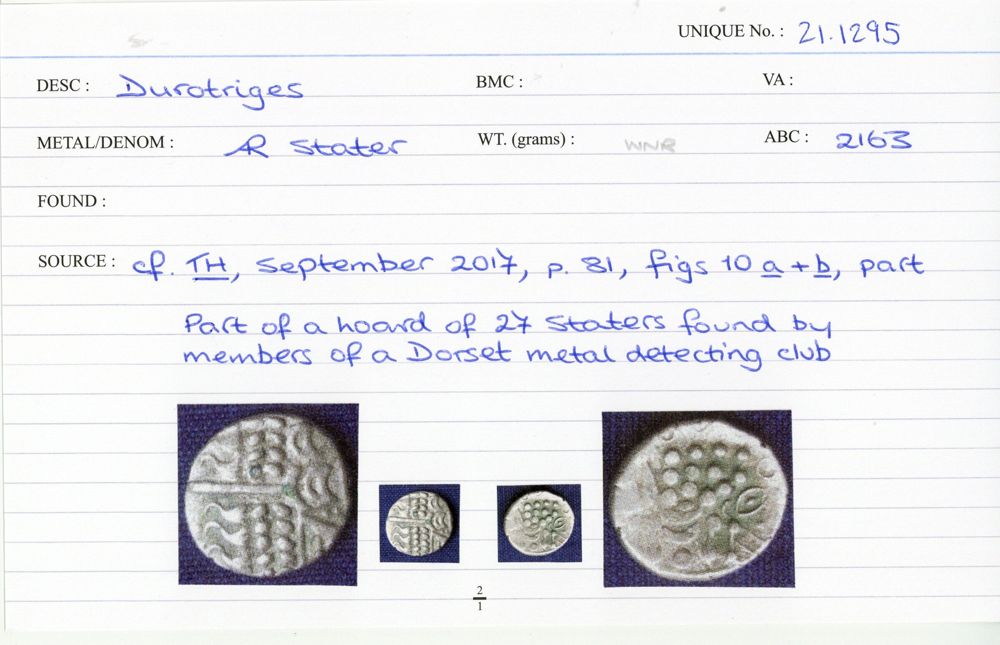 UNIQUE No. : 21.1295
DESC : Durotriges BMC : VA :
METAL/DENOM : AR Stater WT. (grams) : WNR ABC : 2163
FOUND :
SOURCE : cf. TH, September 2017, p. 81, figs 10 a + b, part
Part of a hoard of 27 staters found by
members of a Dorset metal detecting club
2
1